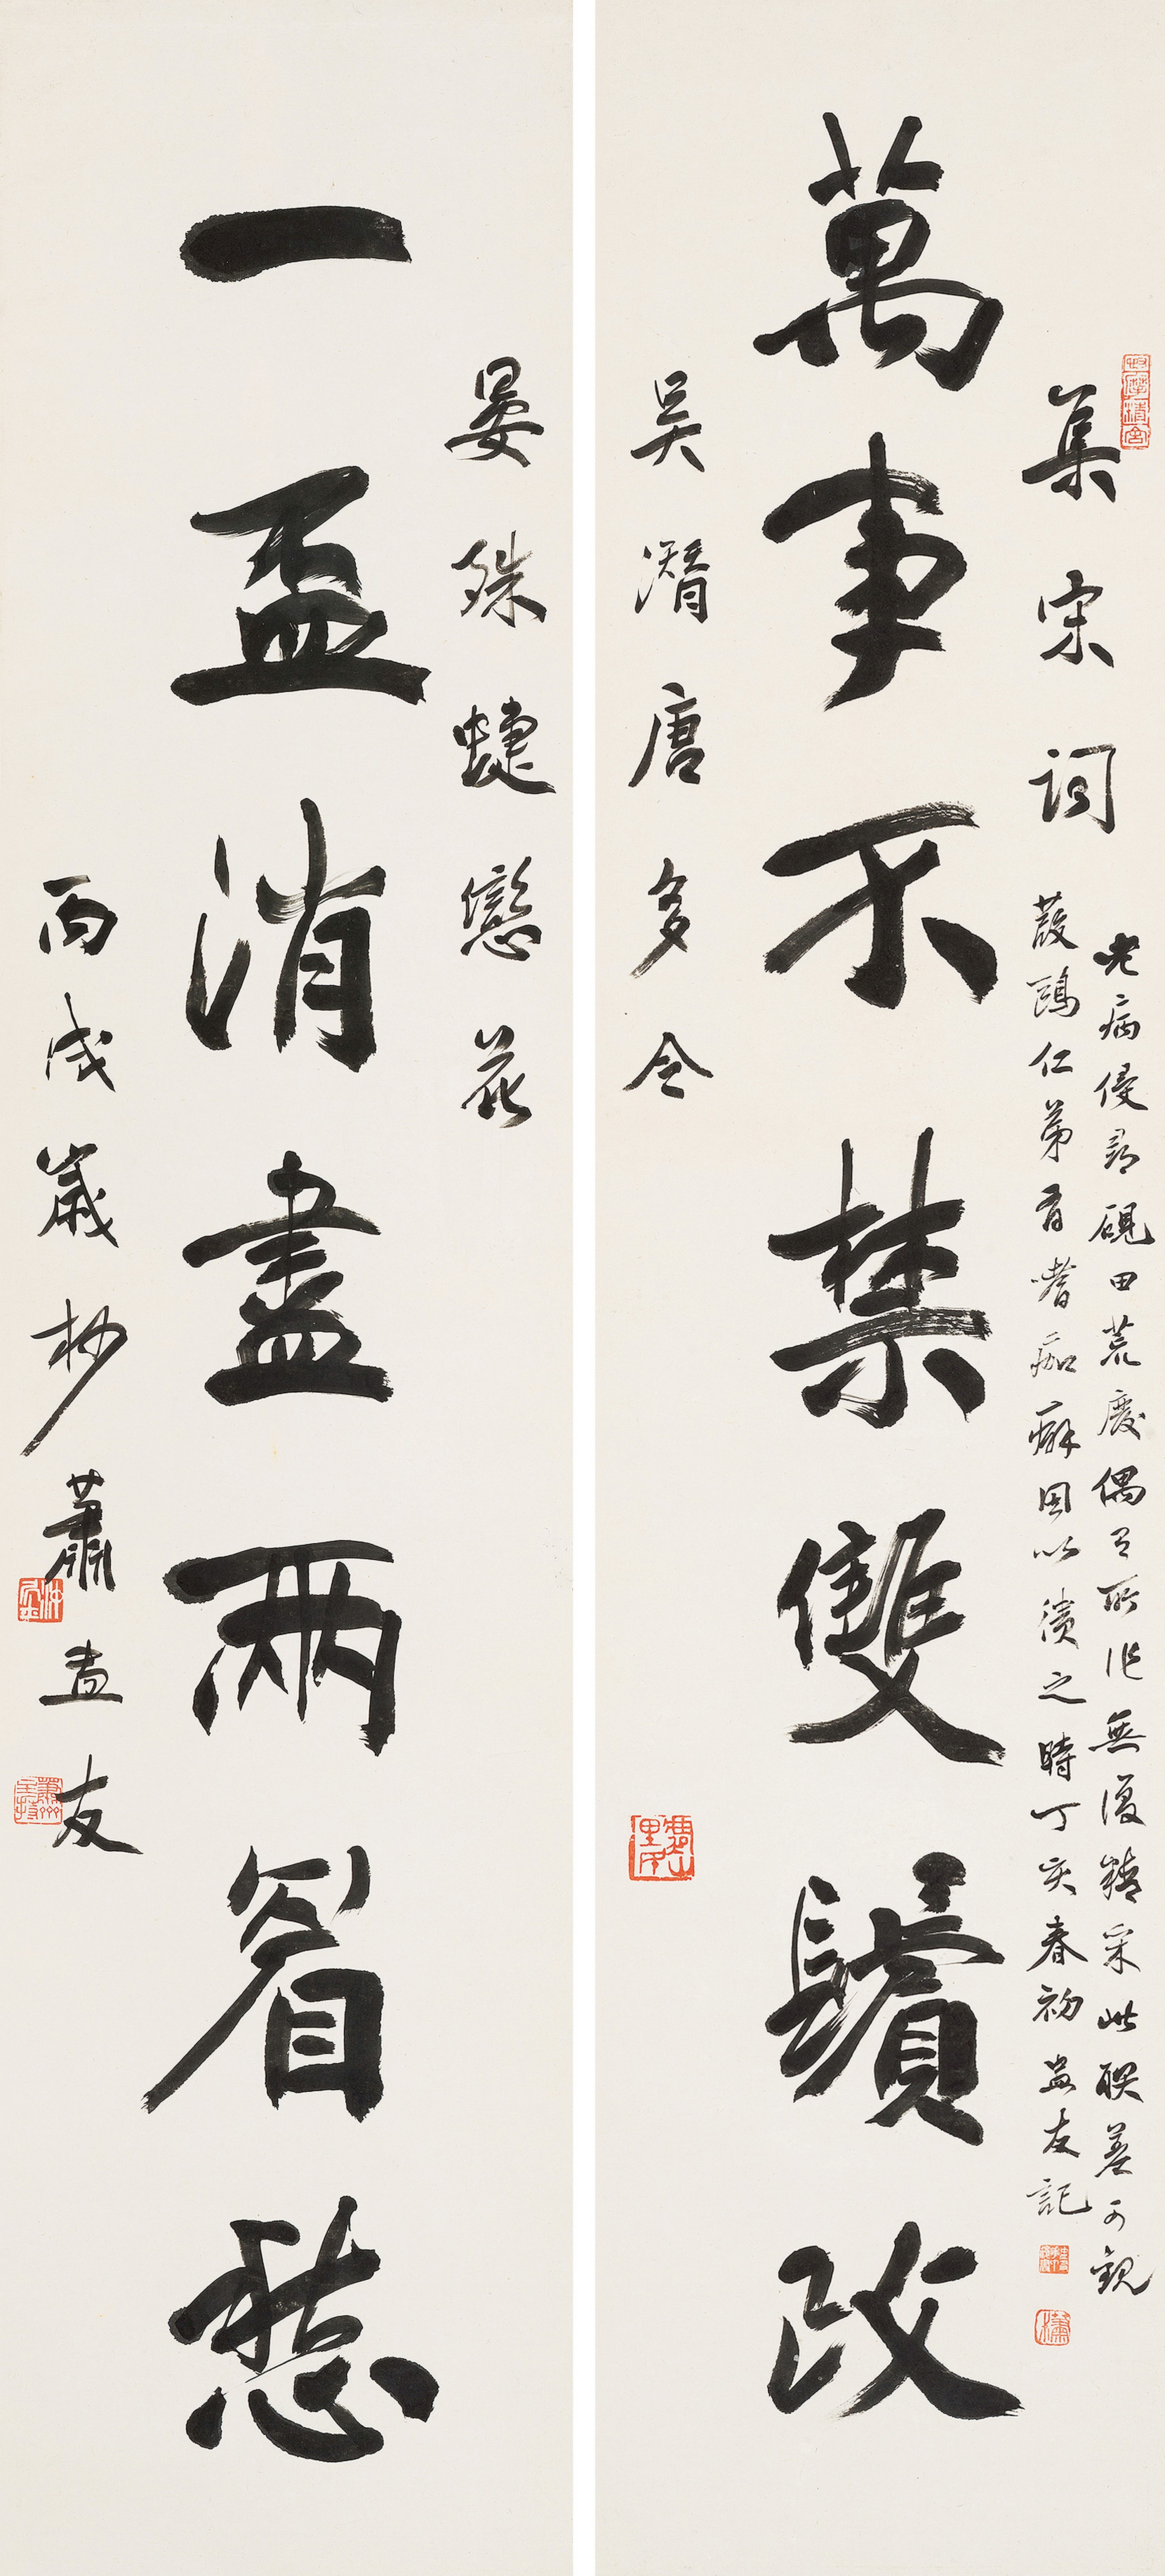 集宋詞
老病侵尋硯田荒廢偶有所作無復精采此联差可觀
葭鷗仁弟有嗜痂癖因以漬之時丁亥春初盅友記
萬事不禁雙鬢改
吳潛唐多令
晏殊蝶戀花
一盃消盡兩眉愁
丙戌歲杪蕭盅友